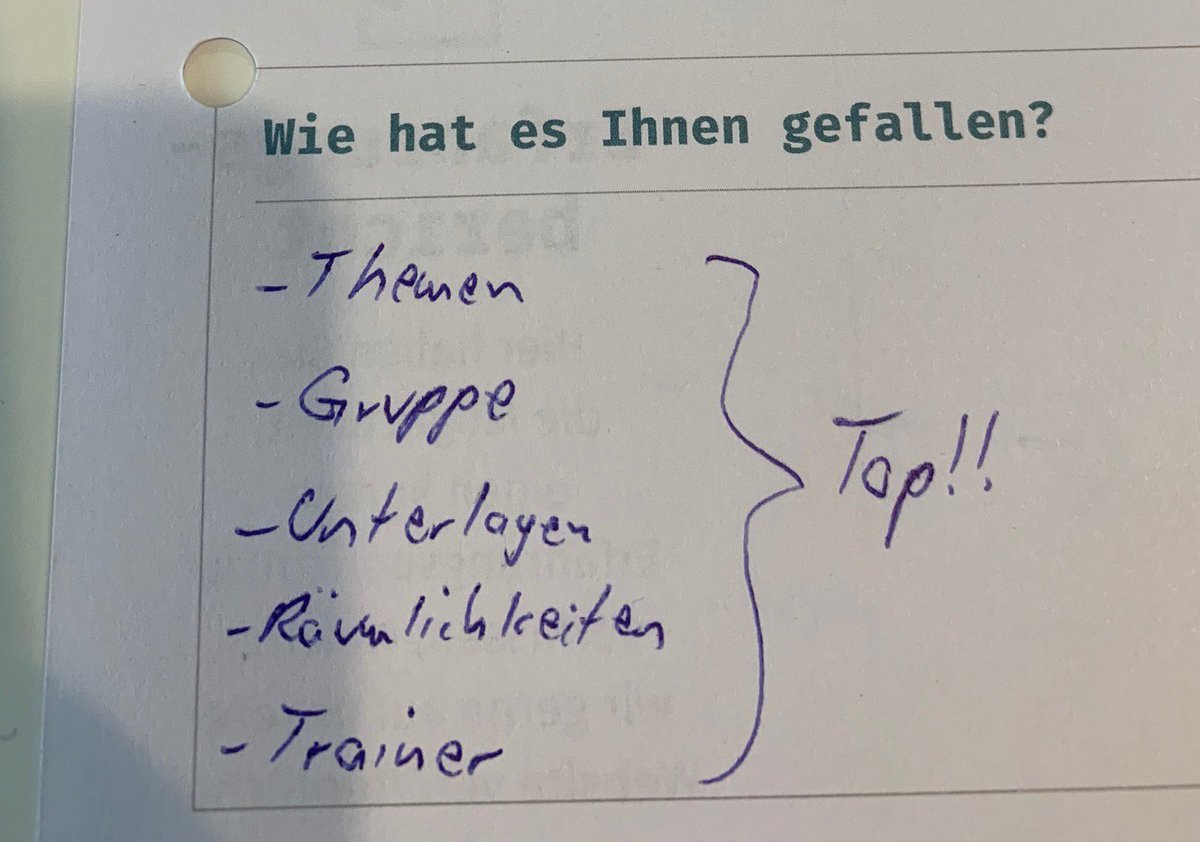 Wie hat es Ihnen gefallen?
- Themen
- Gruppe
- Unterlagen
- Räumlichkeiten
- Trainer
Top!!